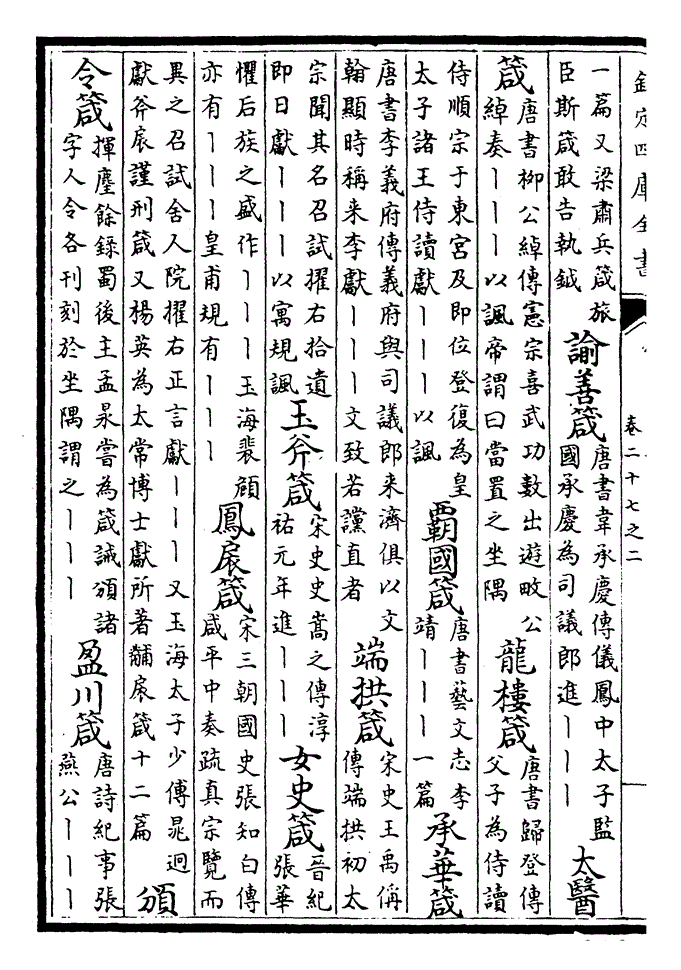 欽定四庫全書
卷二十七之二
一篇又梁肅兵箴旅
臣斯箴敢告執鉞
諭善箴
唐書韋承慶傳儀鳳中太子監
國承慶為司議郎進丨丨丨
太醫
箴
唐書柳公綽傳憲宗喜武功數出遊畋公
綽奏丨丨丨以諷帝謂曰當置之坐隅
龍樓箴
唐書歸登傳
父子為侍讀
侍順宗于東宮及即位登復為皇
太子諸王侍讀獻丨丨丨以諷
覇國箴
唐書藝文志李
靖丨丨丨一篇
承華箴
唐書李義府傳義府與司議郎来濟俱以文
翰顯時稱来李獻丨丨丨文致若讜直者
端拱箴
宋史王禹偁
傳端拱初太
宗聞其名召試擢右拾遺
即日獻丨丨丨以寓規諷
玉斧箴
宋史史嵩之傳淳
祐元年進丨丨丨
女史箴
晉紀
張華
懼后族之盛作丨丨丨玉海裴頠
亦有丨丨丨皇甫規有丨丨丨
鳳扆箴
宋三朝國史張知白傳
咸平中奏疏真宗覽而
異之召試舍人院擢右正言獻丨丨丨又玉海太子少傅晁迥
獻斧扆謹刑箴又楊英為太常博士獻所著黼扆箴十二篇
頒
令箴
揮麈餘錄蜀後主孟昶嘗為箴誡頒諸
字人令各刊刻於坐隅謂之丨丨丨
盈川箴
唐詩紀事張
燕公丨丨丨